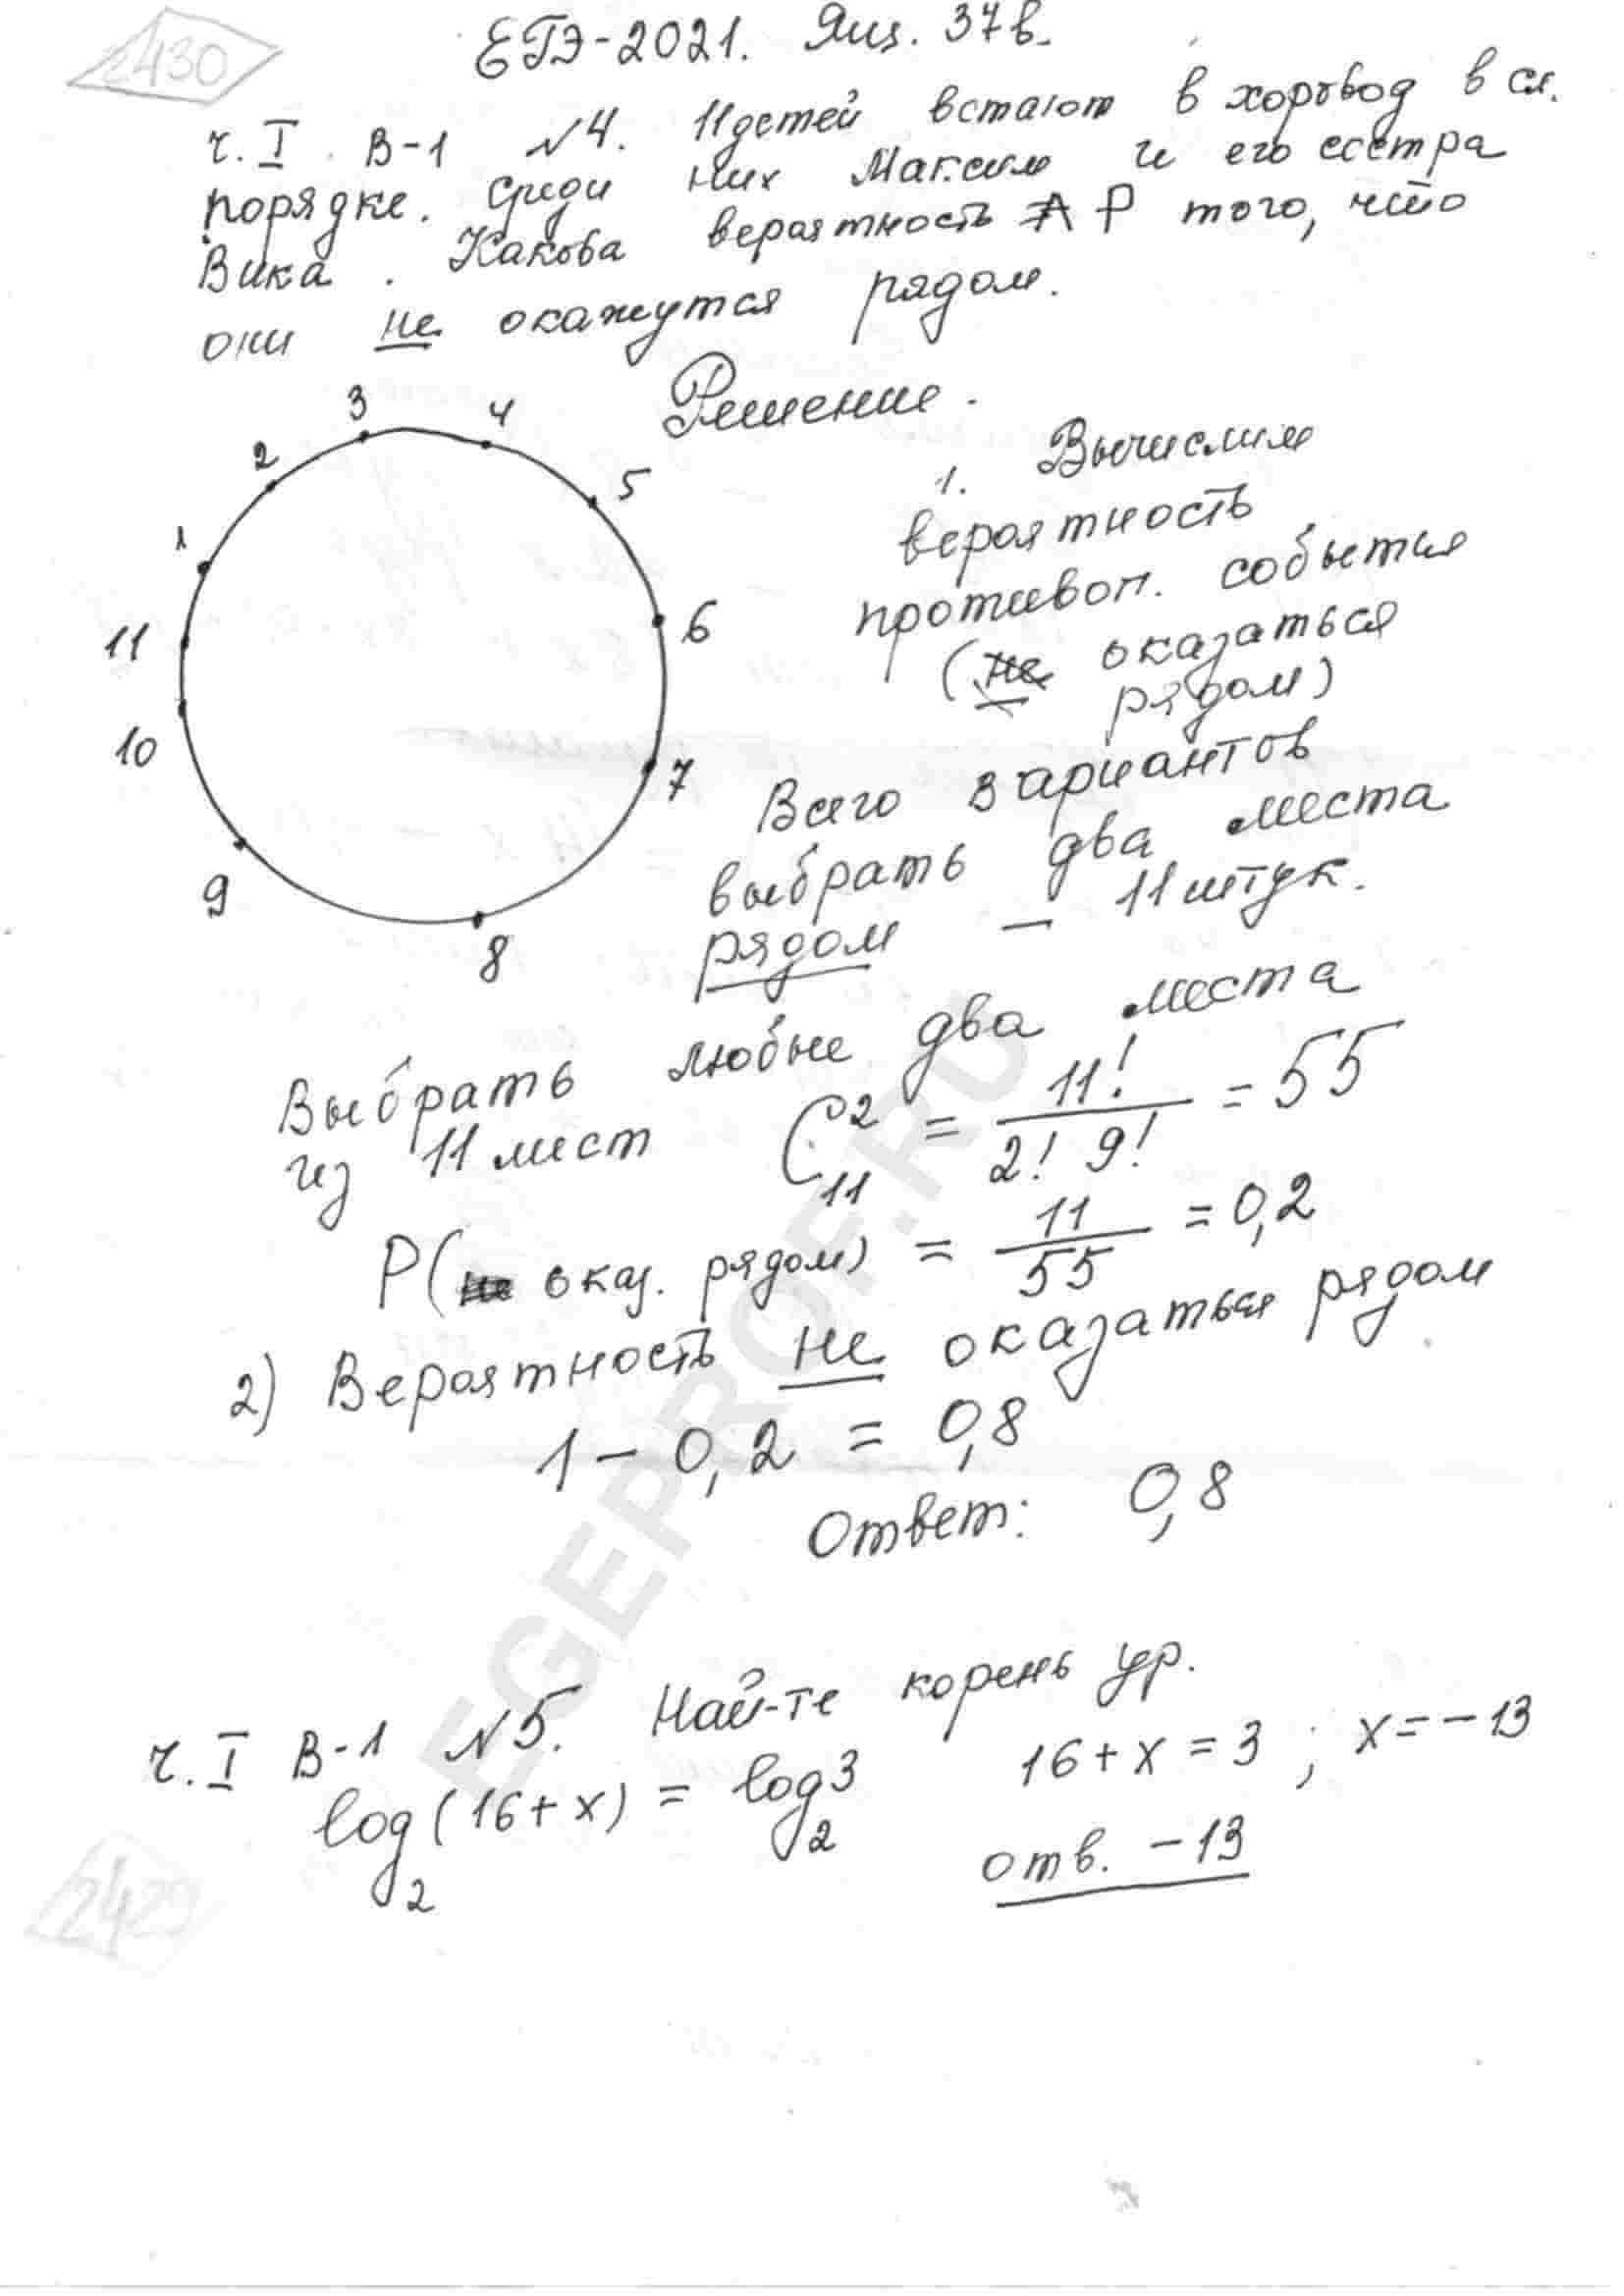 2430
ЕГЭ-2021. Ящ. 37в.
ч. I В-1 №4. 11 детей встают в хоровод в сл.
порядке. Среди них Максим и его сестра
Вика. Какова вероятность P того, что
они не окажутся рядом.
Решение.
1 2 3 4 5 6 7 8 9 10 11
1. Вычислим
вероятность
противоп. события
(оказаться
рядом)
Всего вариантов
выбрать два места
рядом — 11 штук.
Выбрать любые два места
из 11 мест C₁₁² = 11!/(2! 9!) = 55
P(оказ. рядом) = 11/55 = 0,2
2) Вероятность не оказаться рядом
1 - 0,2 = 0,8
Ответ: 0,8
ч. I В-1 №5. Най-те корень ур.
log₂(16+x) = log₂3 16+x=3; x=-13
отв. -13
2429
EGEPROF.RU